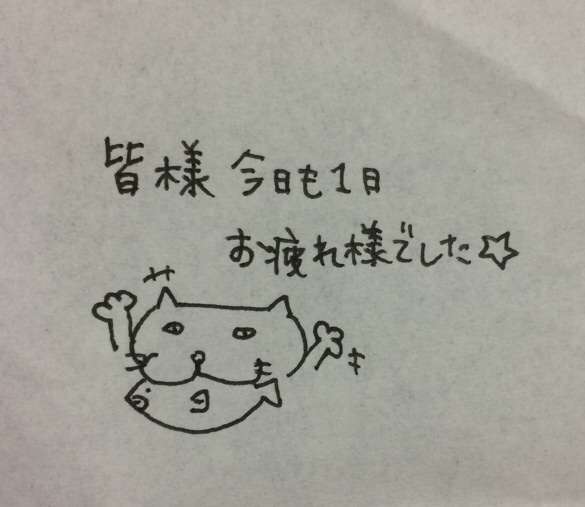 皆様 今日も1日
お疲れ様でした☆